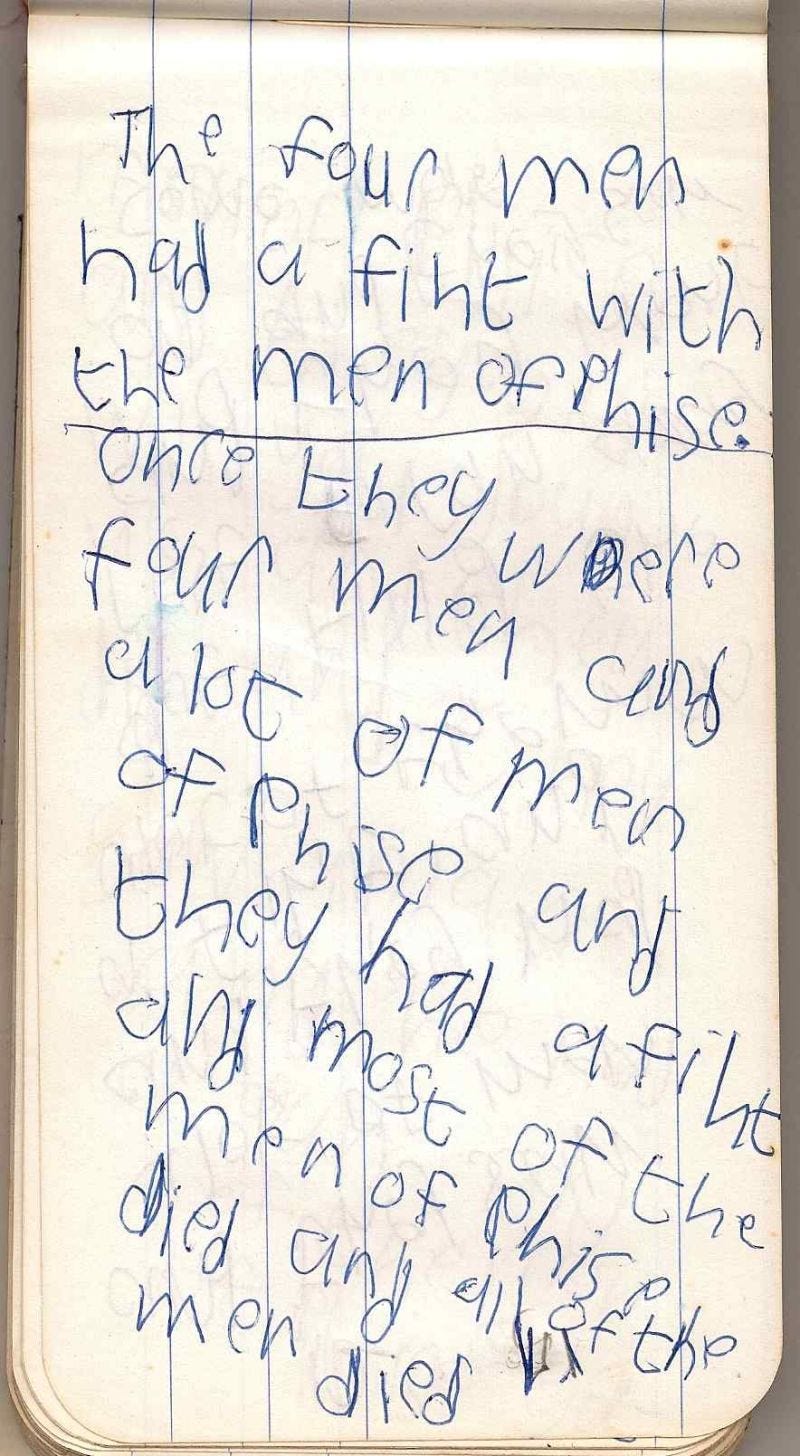 The four men
had a fiht with
the men of phise.
once they were
four men and
a lot of men
of phise and
they had a fiht
and most of the
men of phise
died and all of the
men died